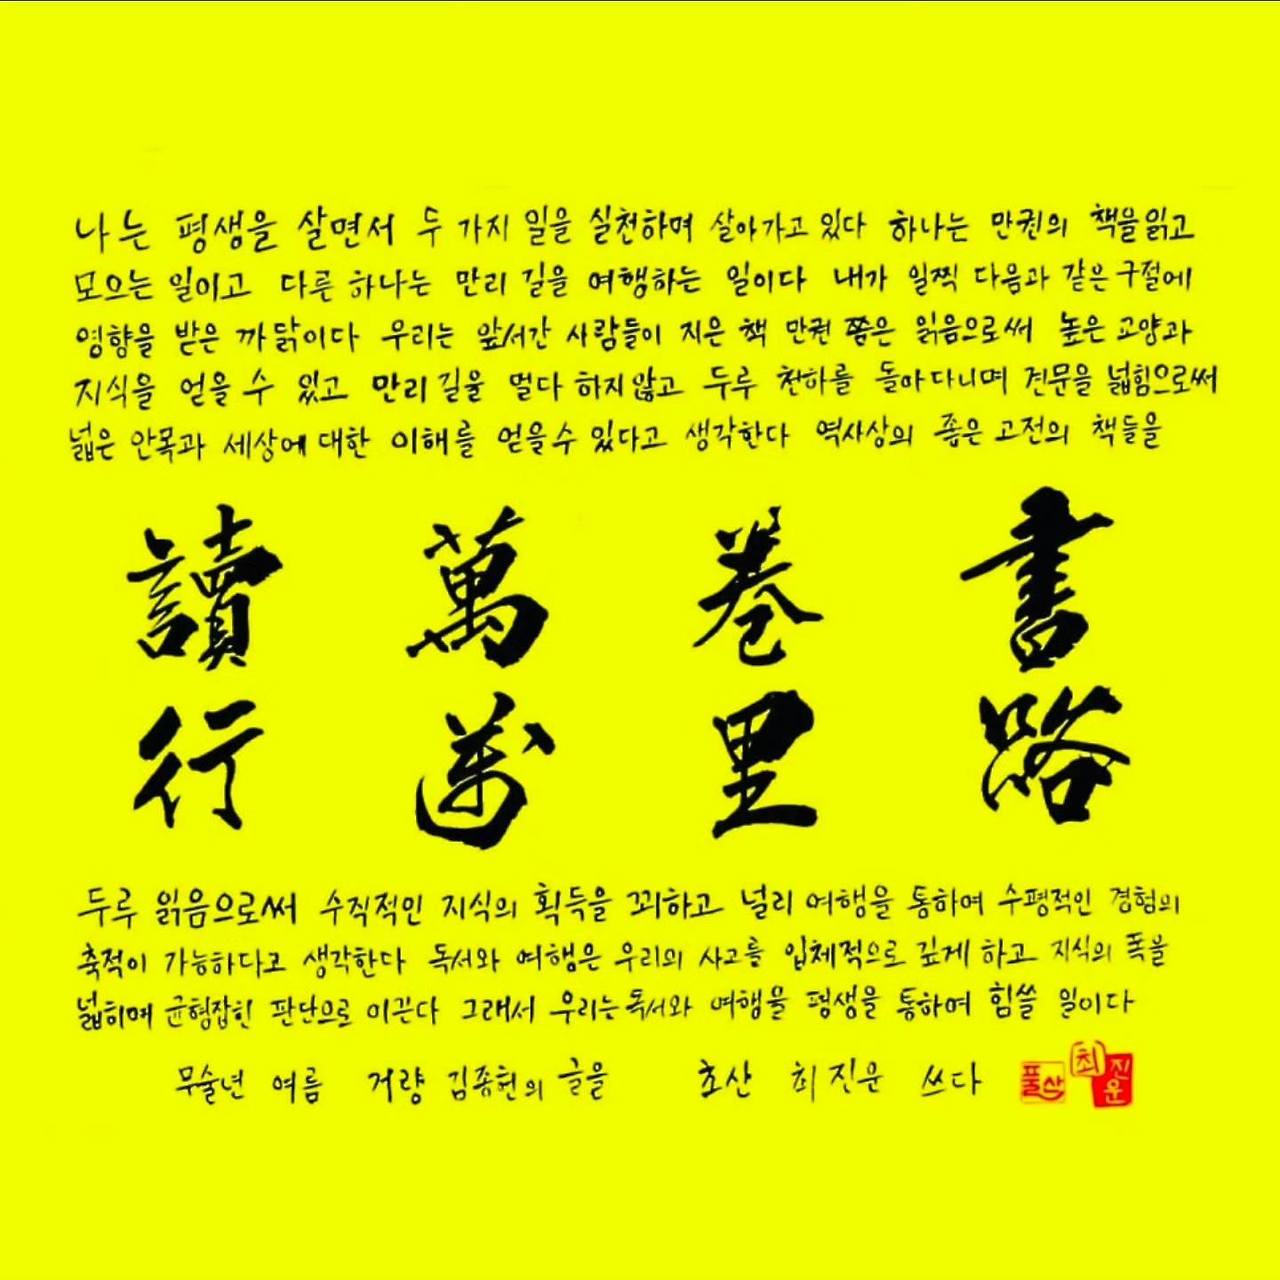 나는 평생을 살면서 두 가지 일을 실천하며 살아가고 있다 하나는 만권의 책을 읽고
모으는 일이고 다른 하나는 만리 길을 여행하는 일이다 내가 일찍 다음과 같은 구절에
영향을 받은 까닭이다 우리는 앞서간 사람들이 지은 책 만권 쯤은 읽음으로써 높은 교양과
지식을 얻을 수 있고 만리 길을 멀다 하지 않고 두루 천하를 돌아다니며 견문을 넓힘으로써
넓은 안목과 세상에 대한 이해를 얻을 수 있다고 생각한다 역사상의 좋은 고전의 책들을
讀萬卷書
行萬里路
두루 읽음으로써 수직적인 지식의 획득을 꾀하고 널리 여행을 통하여 수평적인 경험의
축적이 가능하다고 생각한다 독서와 여행은 우리의 사고를 입체적으로 깊게 하고 지식의 폭을
넓히며 균형잡힌 판단으로 이끈다 그래서 우리는 독서와 여행을 평생을 통하여 힘쓸 일이다
무술년 여름 거량 김종헌의 글을 초산 최진운 쓰다
풀산 최진운